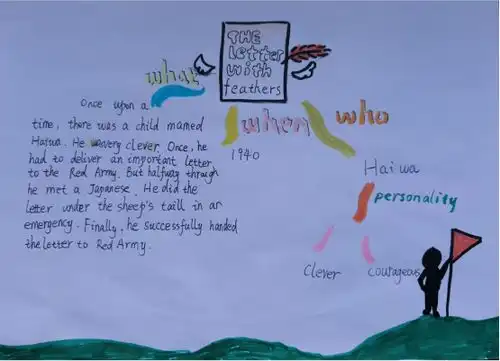 THE
Letter
with
feathers
what
Once upon a
time, there was a child mamed
Haiwa. He wavery clever. Once, he
had to deliver an important letter
to the Red Army. But halfway through
he met a Japanese. He did the
letter under the sheep's taill in an
emergency. Finally, he successfully handed
the letter to Red Army.
when
1940
who
Haiwa
personality
Clever
courageous